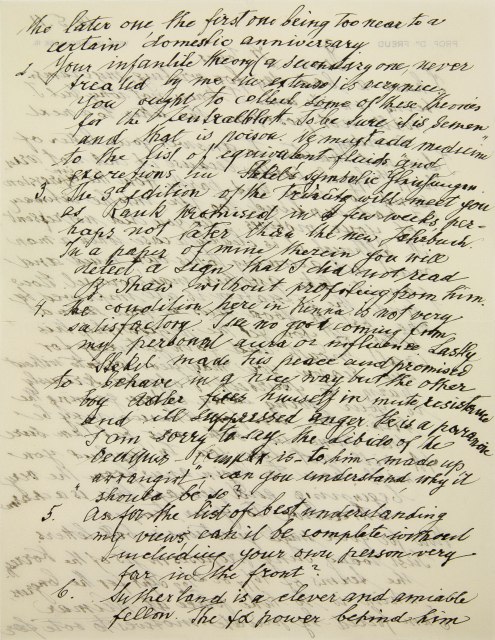 the later one the first one being too near to a
certain domestic anniversary
2. Your infantile theory (a secondary one, never
treated by me in extenso) is very nice
You ought to collect some of these theories
for the Zentralblatt. To be sure it is Semen
and that is poison. We must add "medicine"
to the list of equivalent fluids and
excretions in Stekel's symbolic
3. The 3d edition of the will meet you
as Rank promised in a few weeks per-
haps not later than the new Jahrbuch
In a paper of mine therein you will
detect a sign that I did not read
B. Shaw without profiting from him.
4. The condition here in Vienna is not very
satisfactory. I see no good coming from
my personal aura or influence. Lastly
Stekel made his peace and promised
to behave in a nice way but the other
boy Adler himself in mute resistance
and ill suppressed anger. He is a paranoic
I am sorry to say. the libido of the
Oedipus - is - to him - made up,
"arrangirt", can you understand why it
should be so?
5. As for the list of best understanding
my views, can it be complete without
including your own person very
far in the front?
6. Sutherland is a clever and amiable
fellow. The power behind him
PROF. DR. FREUD